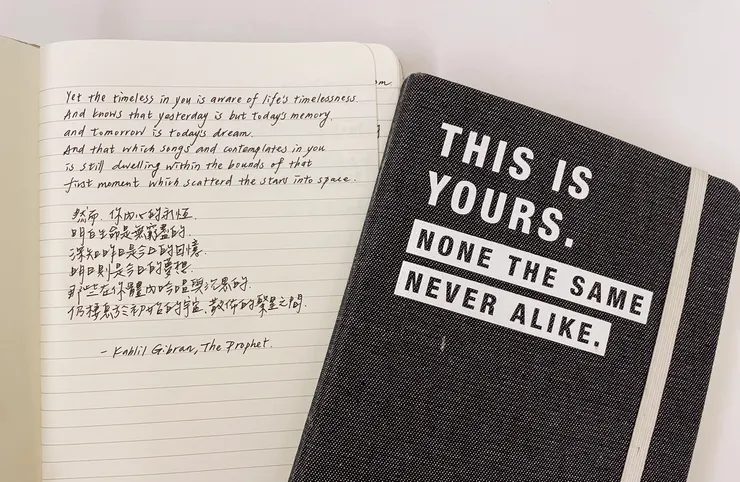 Yet the timeless in you is aware of life's timelessness.
And knows that yesterday is but today's memory
and tomorrow is today's dream.
And that which songs and contemplates in you
is still dwelling within the bounds of that
first moment which scatterd the stars into space.
然而，你內心的永恆，
明白生命是無窮盡的，
深知昨日是今日的回憶，
明日則是今日的夢想，
那些在你體內吟唱與沉思的，
仍棲息於初始的宇宙、散佈的繁星之間.
- Kahlil Gibran, The Prophet.
THIS IS
YOURS.
NONE THE SAME
NEVER ALIKE.